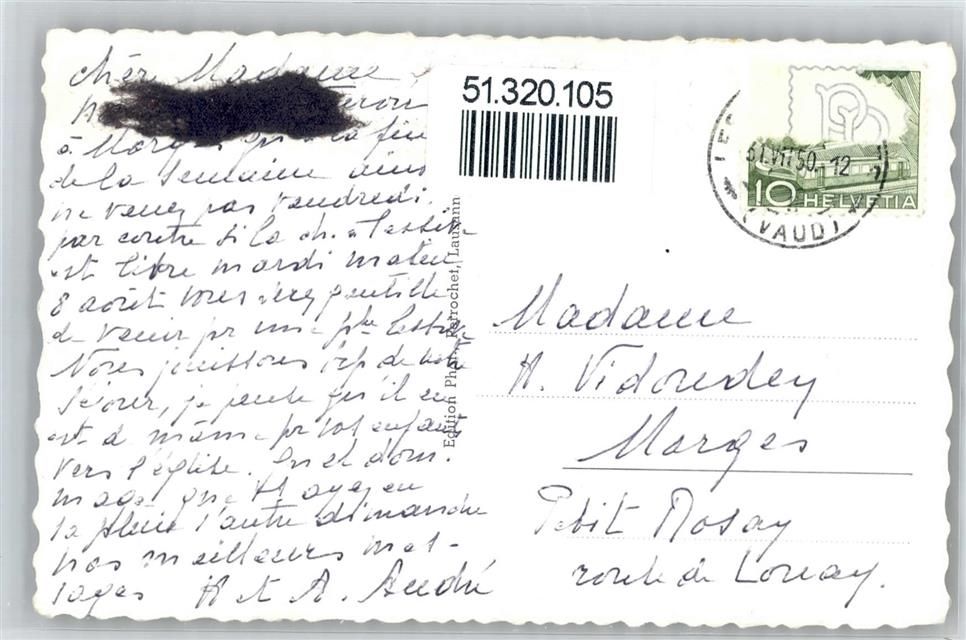 Chère Madame
à Morges qu'à la fin
de la semaine ainsi
ne venez pas vendredi.
par contre si la ch. à lessive
est libre mardi matin
8 août vous seriez gentille
de venir pr une pte lessive
Nous jouissons bcp de notre
séjour, je pense qu'il en
est de même pr vos enfants
vers l'église. Quel dom-
mage que
la pluie l'autre dimanche
Nos meilleurs mes-
sages H et A. André
51.320.105
Edition Phot. Perrochet, Lausann
31.VII 50. 12
(VAUD)
10 HELVETIA
Madame
H. Vidoudey
Morges
Petit Rosay
route de Lonay.